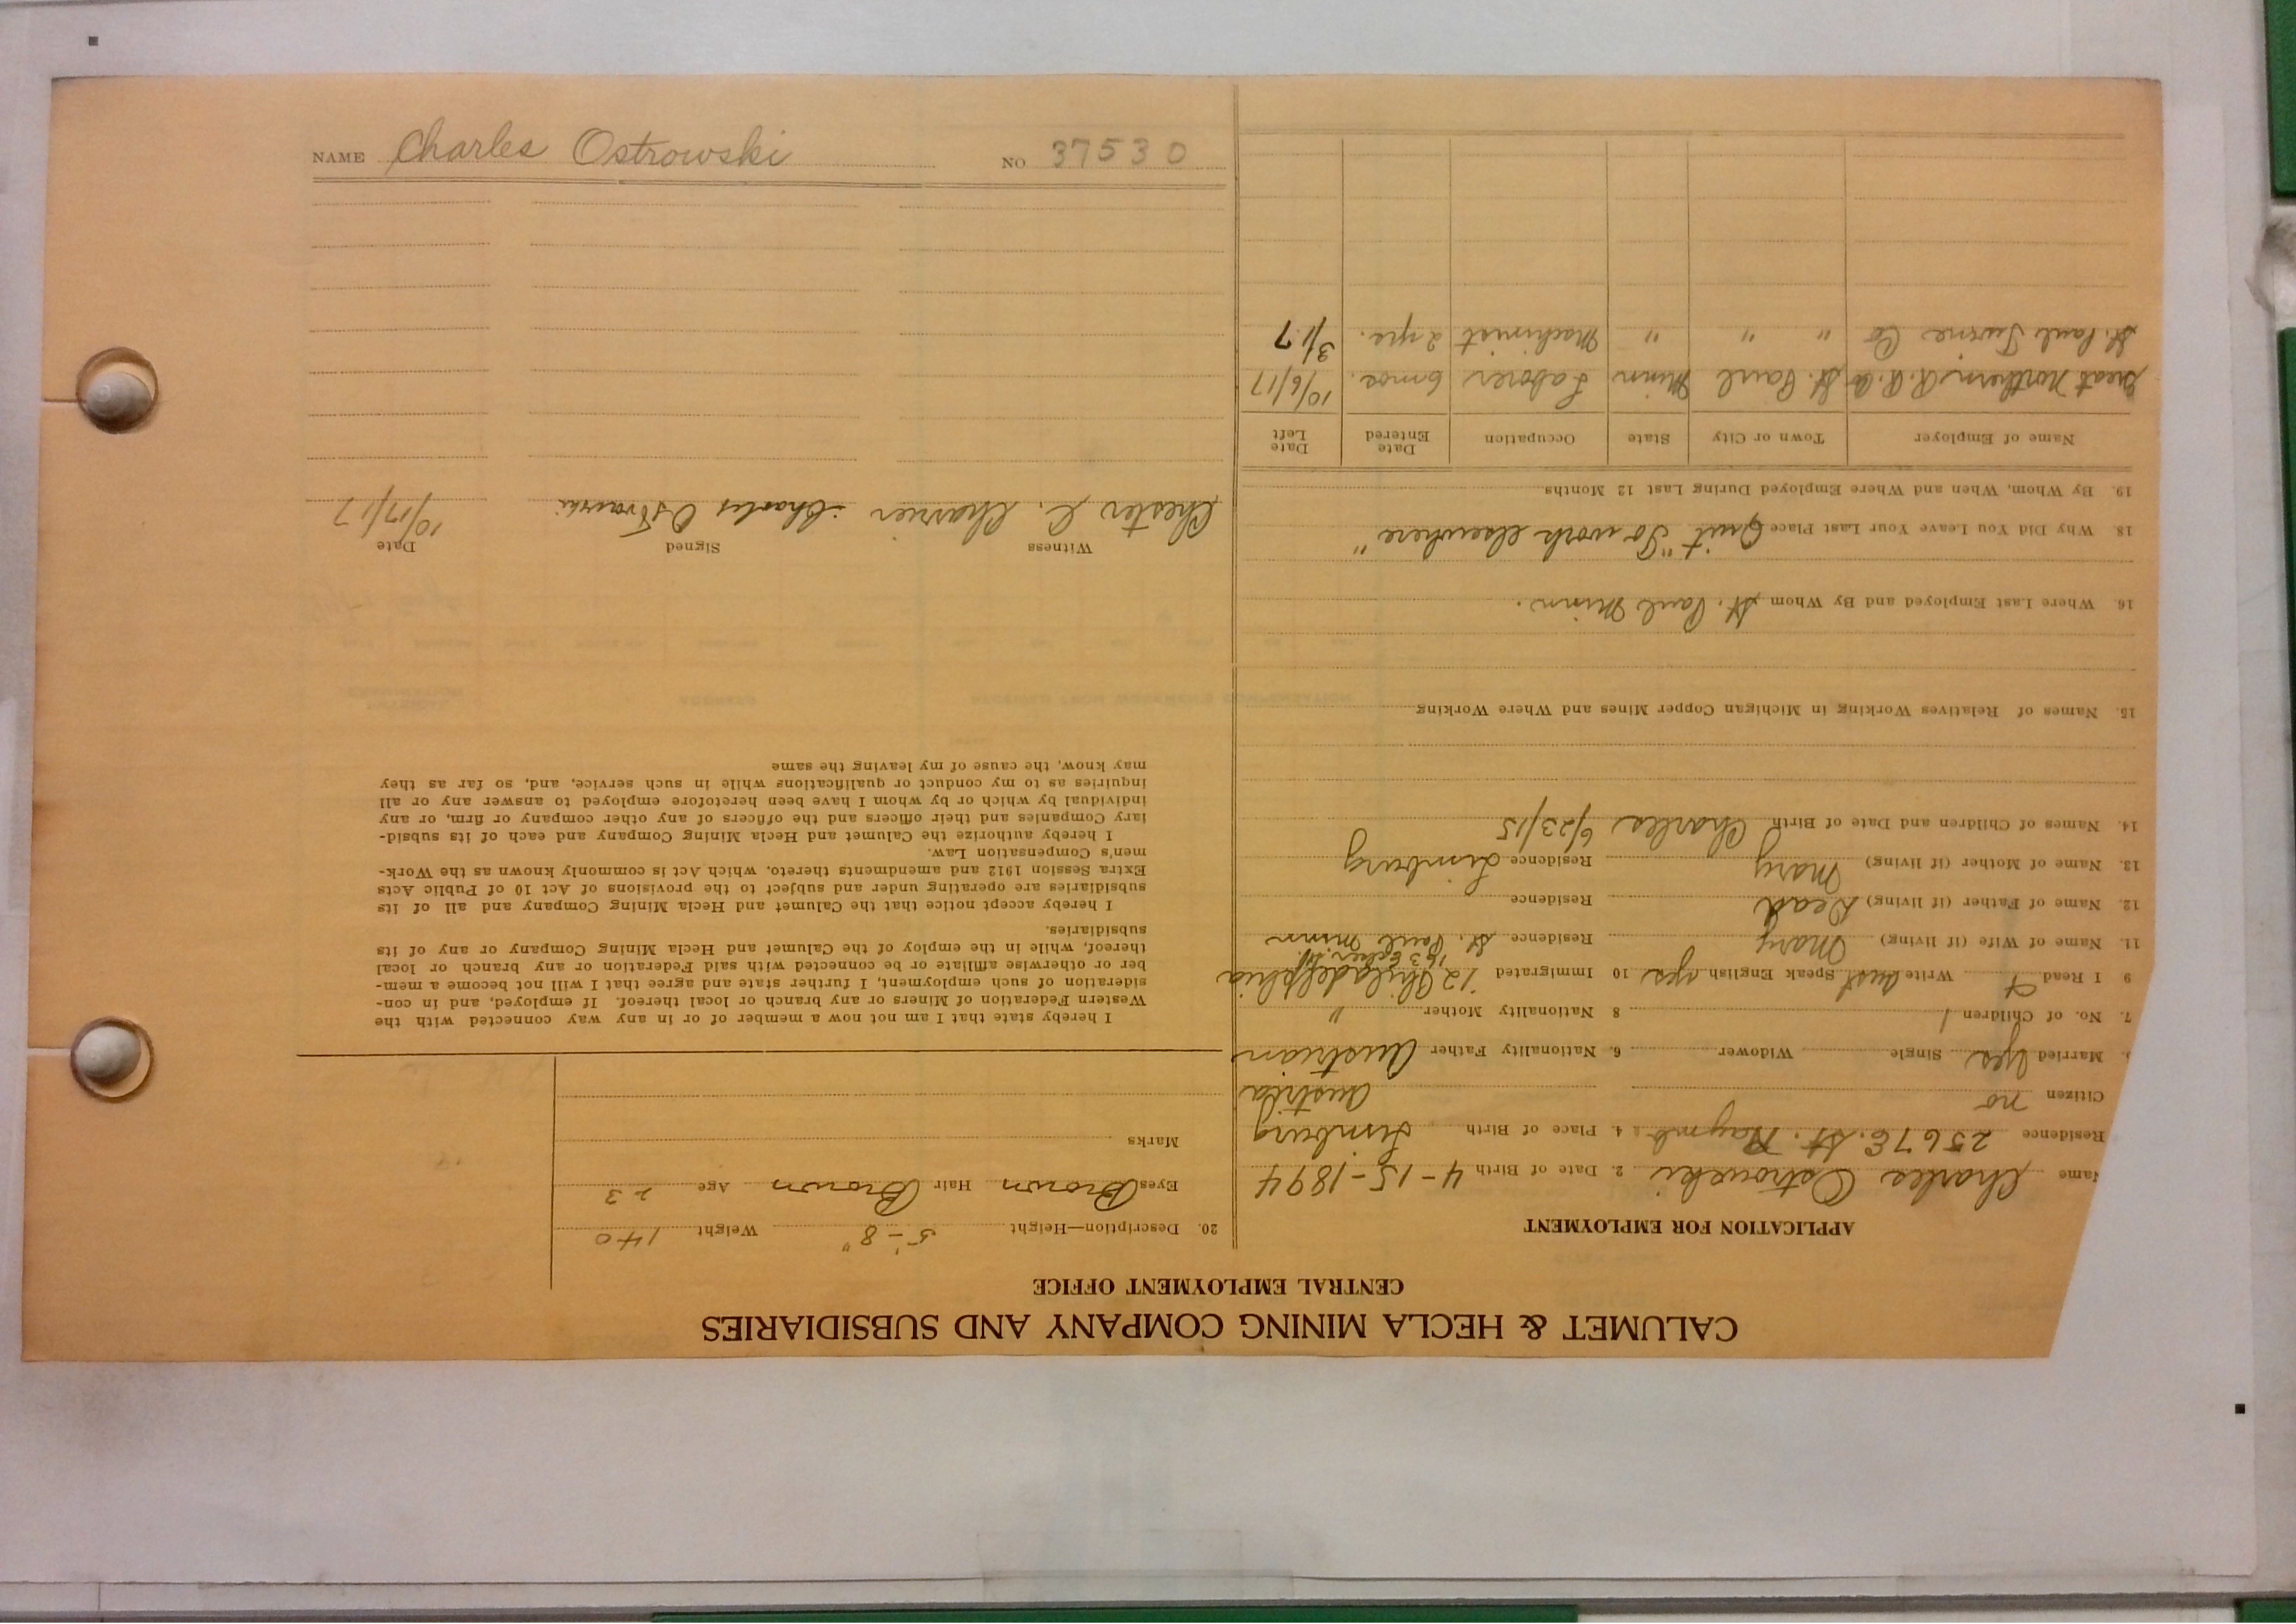 NAME Charles Ostrowski NO 37530
CALUMET & HECLA MINING COMPANY AND SUBSIDIARIES
CENTRAL EMPLOYMENT OFFICE
APPLICATION FOR EMPLOYMENT
Name Charles Ostrowski 2. Date of Birth 4-15-1894
Residence 2567 E. St. 4. Place of Birth
Citizen no Austria
Married yes Single Widower 6. Nationality Father Austrian
7. No. of Children 1 8 Nationality Mother "
9 I Read Write Aust Speak English yes 10 Immigrated '12 Philadelphia
11. Name of Wife (if living) Mary Residence St. Paul Minn
12. Name of Father (if living) Dead Residence
13. Name of Mother (if living) Mary Residence
14. Names of Children and Date of Birth Charles 6/23/15
15. Names of Relatives Working in Michigan Copper Mines and Where Working
16. Where Last Employed and By Whom St. Paul Minn.
18. Why Did You Leave Your Last Place Quit "To work elsewhere"
19. By Whom, When and Where Employed During Last 12 Months
Name of Employer Town or City State Occupation Date Entered Date Left
Great Northern R.R. Co St. Paul Minn Laborer 6 mos. 10/6/17
St. Paul Co " " " Machinist 2 yrs. 3/17
20. Description—Height 5'-8" Weight 140
Eyes Brown Hair Brown Age 23
Marks
I hereby state that I am not now a member of or in any way connected with the
Western Federation of Miners or any branch or local thereof. If employed, and in con-
sideration of such employment, I further state and agree that I will not become a mem-
ber or otherwise affiliate or be connected with said Federation or any branch or local
thereof, while in the employ of the Calumet and Hecla Mining Company or any of its
subsidiaries.
I hereby accept notice that the Calumet and Hecla Mining Company and all of its
subsidiaries are operating under and subject to the provisions of Act 10 of Public Acts
Extra Session 1912 and amendments thereto, which Act is commonly known as the Work-
men's Compensation Law.
I hereby authorize the Calumet and Hecla Mining Company and each of its subsid-
iary Companies and their officers and the officers of any other company or firm, or any
individual by which or by whom I have been heretofore employed to answer any or all
inquiries as to my conduct or qualifications while in such service, and, so far as they
may know, the cause of my leaving the same
Witness Signed Date
Chester C. Charles Ostrowski 10/17/17